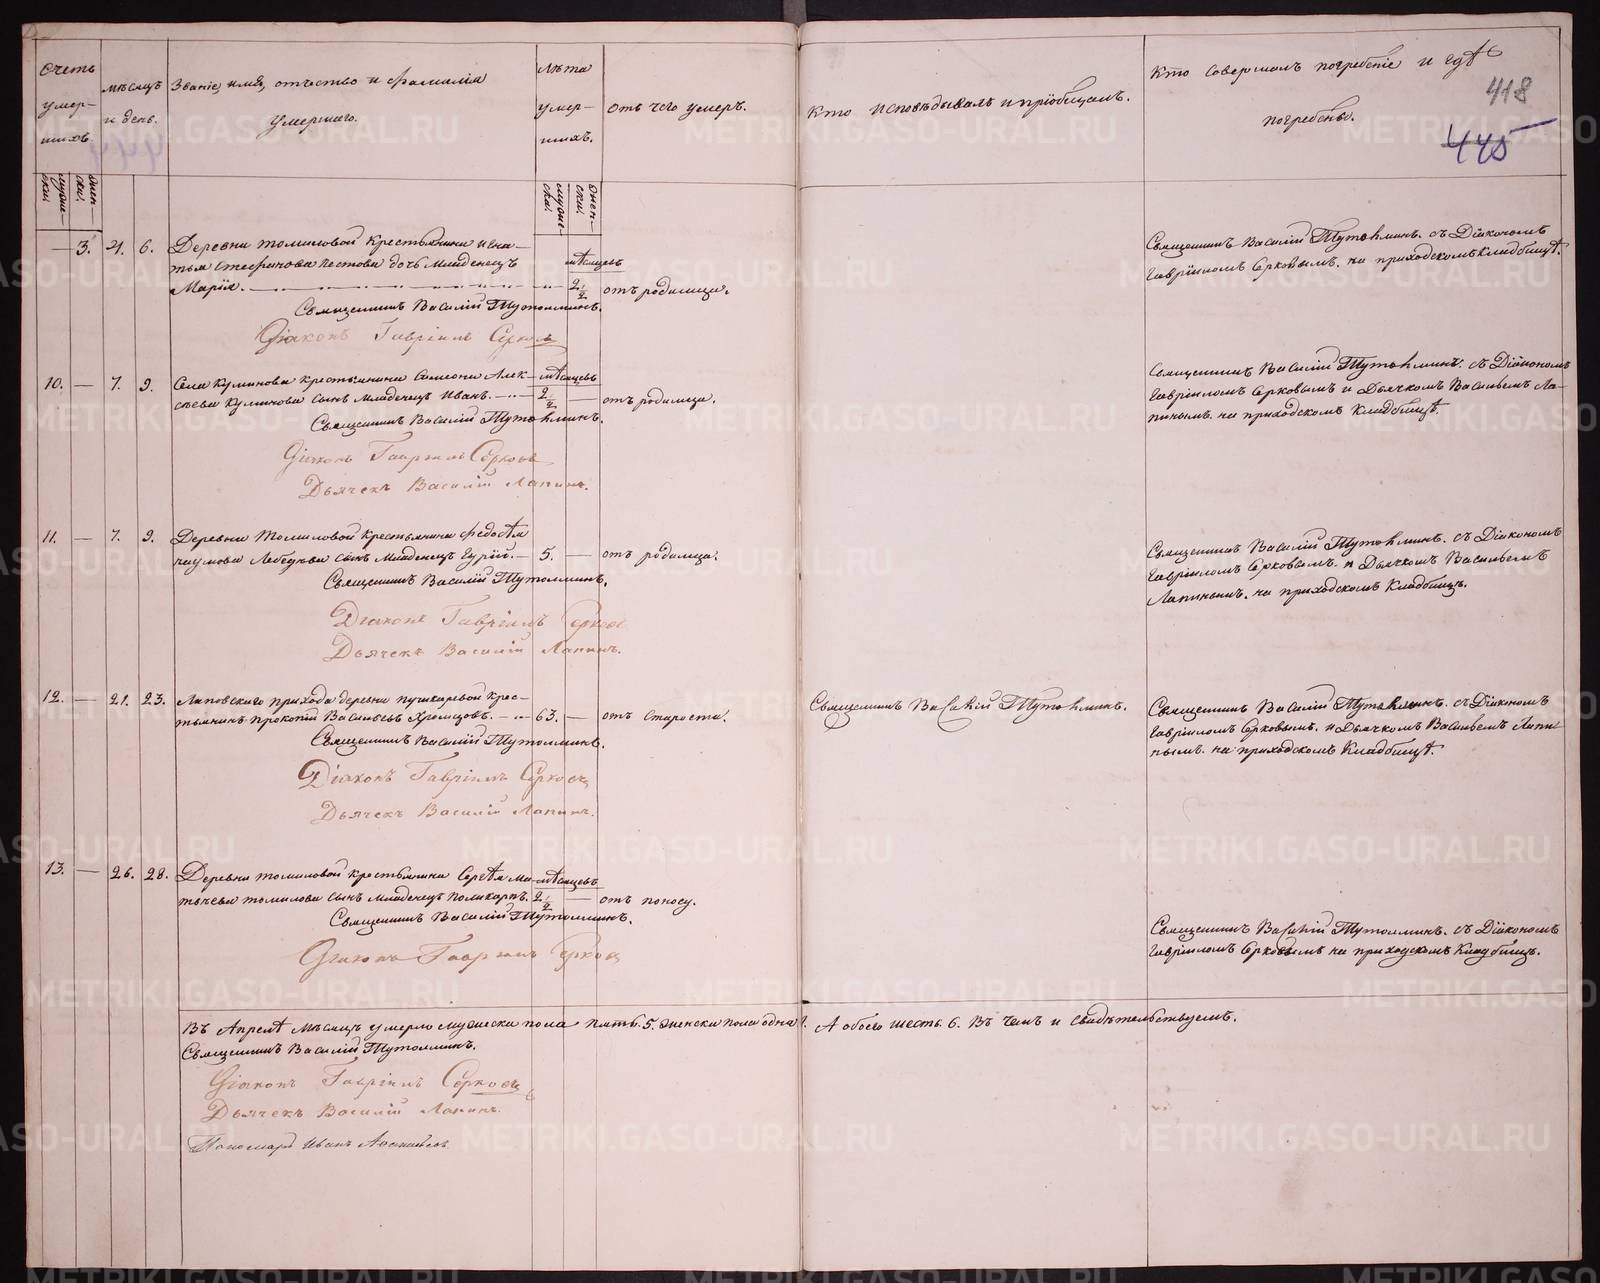 Счетъ умер-шихъ.
мѣсяцъ и день.
Званіе, имя, отъчство и фамилія умершаго.
Лѣта умер-шихъ.
отъ чего умеръ.
Кто исповѣдывалъ и пріобщалъ.
Кто совершалъ погребеніе и гдѣ погребены.
418
445
мужес-ски.
женс-ски.
мужес-ска.
женс-ски.
— 3. 4. 6. Деревни томиловой крестьянина Игна-
тья Стефанова Пестова дочь младенецъ мѣсяцевъ
Марія. 2 1/2 отъ родимца.
Священникъ Василій Тутолминъ.
Діаконъ Гавріилъ Серковъ
Священникъ Василій Тутолминъ. съ Діакономъ
Гавріиломъ Серковымъ. на приходскомъ Кладбищѣ.
10. — 7. 9. Села Куликова крестьянина Симеона Алек- мѣсяцевъ
сѣева Куликова сынъ младенецъ Иванъ. 2 1/2 — отъ родимца.
Священникъ Василій Тутолминъ.
Діаконъ Гавріилъ Серковъ
Дьячекъ Василій Лапинъ.
Священникъ Василій Тутолминъ. съ Діакономъ
Гавріиломъ Серковымъ и Дьячкомъ Васильемъ Ла-
пинымъ. на приходскомъ Кладбищѣ.
11. — 7. 9. Деревни Томиловой крестьянина Федосѣя
Наумова Лебедева сынъ младенецъ Гурій. — 5. — отъ родимца.
Священникъ Василій Тутолминъ.
Діаконъ Гавріилъ Серковъ
Дьячекъ Василій Лапинъ.
Священникъ Василій Тутолминъ. съ Діакономъ
Гавріиломъ Серковымъ. и Дьячкомъ Васильемъ
Лапинымъ. на приходскомъ Кладбищѣ.
12. — 21. 23. Липовскаго прихода деревни пушкаревой крес-
тьянинъ Прокопій Васильевъ Хромцовъ. — 63. — отъ старости.
Священникъ Василій Тутолминъ.
Діаконъ Гавріилъ Серковъ
Дьячекъ Василій Лапинъ.
Священникъ Василій Тутолминъ.
Священникъ Василій Тутолминъ. съ Діакономъ
Гавріиломъ Серковымъ. и Дьячкомъ Васильемъ Лапи-
нымъ. на приходскомъ Кладбищѣ.
13. — 26. 28. Деревни томиловой крестьянина Сергѣя Ма- мѣсяцевъ
твѣева томилова сынъ младенецъ Поликарпъ. 2 1/2 — отъ поносу.
Священникъ Василій Тутолминъ.
Діаконъ Гавріилъ Серковъ
Священникъ Василій Тутолминъ. съ Діакономъ
Гавріиломъ Серковымъ на приходскомъ Кладбищѣ.
Въ Апрелѣ мѣсяцѣ умерло мужеска пола пять. 5. женска пола одна 1. А обоего шесть. 6. Въ чемъ и свидѣтельствуемъ.
Священникъ Василій Тутолминъ.
Діаконъ Гавріилъ Серковъ
Дьячекъ Василій Лапинъ.
Пономарь Иванъ
METRIKI.GASO-URAL.RU